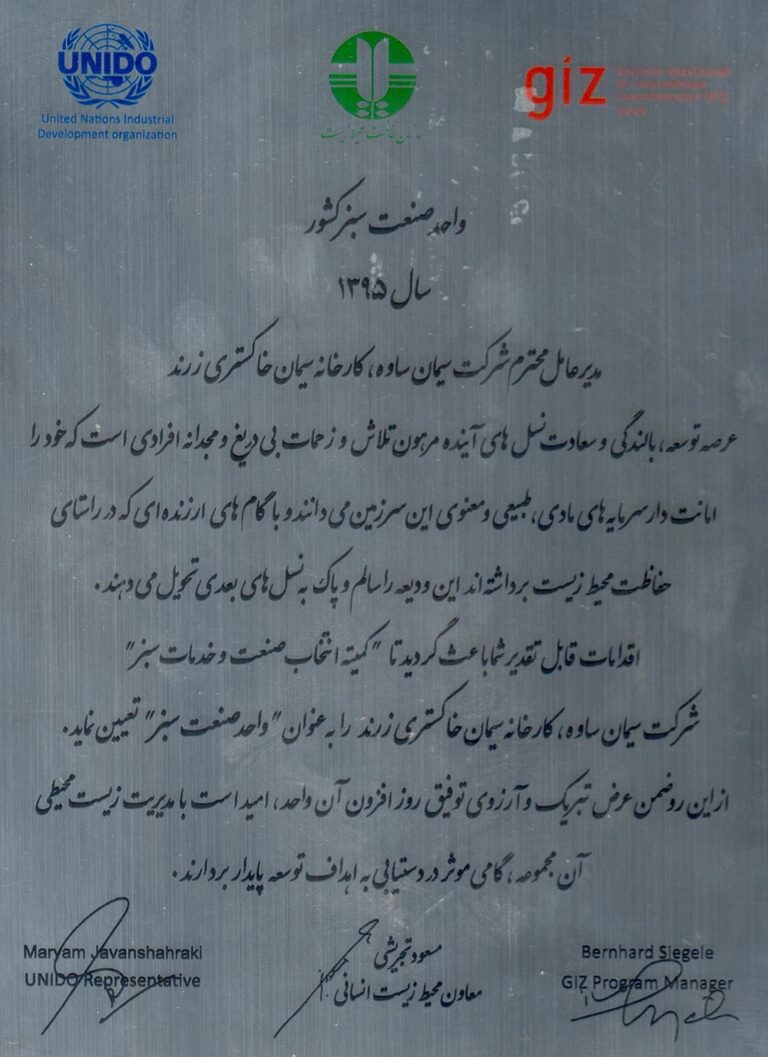 UNIDO
United Nations Industrial
Development organization
سازمان حفاظت محیط زیست
giz
واحد صنعت سبز کشور
سال ۱۳۹۵
مدیر عامل محترم شرکت سیمان ساوه، کارخانه سیمان خاکستری زرند
عرصه توسعه، بالندگی و سعادت نسل های آینده مرهون تلاش و زحمات بی دریغ و مجدانه افرادی است که خود را
امانت دار سرمایه های مادی، طبیعی و معنوی این سرزمین می دانند و با گام های ارزنده ای که در راستای
حفاظت محیط زیست برداشته اند این ودیعه را سالم و پاک به نسل های بعدی تحویل می دهند.
اقدامات قابل تقدیر شما باعث گردید تا "کمیته انتخاب صنعت و خدمات سبز"
شرکت سیمان ساوه، کارخانه سیمان خاکستری زرند را به عنوان "واحد صنعت سبز" تعیین نماید.
از این رو ضمن عرض تبریک و آرزوی توفیق روز افزون آن واحد، امید است با مدیریت زیست محیطی
آن مجموعه، گامی موثر در دستیابی به اهداف توسعه پایدار بردارند.
Maryam Javanshahraki
UNIDO Representative
مسعود تجریشی
معاون محیط زیست انسانی
Bernhard Siegele
GIZ Program Manager